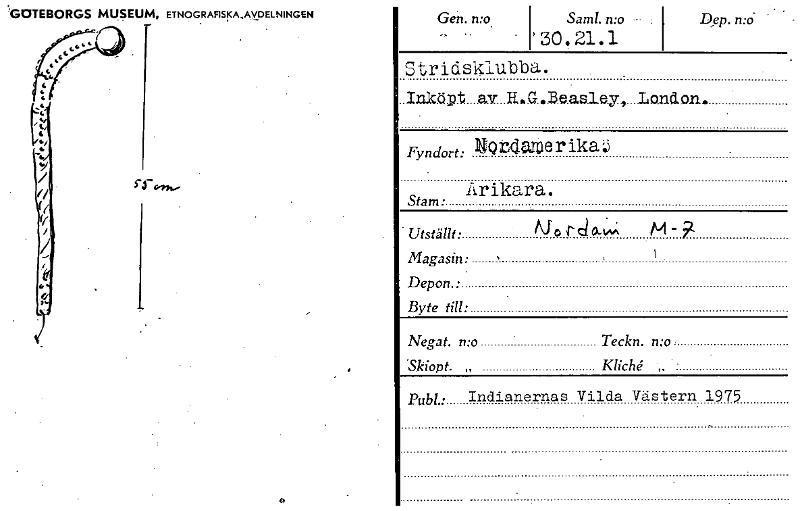 GÖTEBORGS MUSEUM, ETNOGRAFISKA AVDELNINGEN
55 cm
Gen. n:o Saml. n:o Dep. n:o
30.21.1
Stridsklubba.
Inköpt av H.G.Beasley, London.
Fyndort: Nordamerika.
Stam: Arikara.
Utställt: Nordam M-7
Magasin:
Depon.:
Byte till:
Negat. n:o Teckn. n:o
Skiopt. „ Kliché „
Publ.: Indianernas Vilda Västern 1975